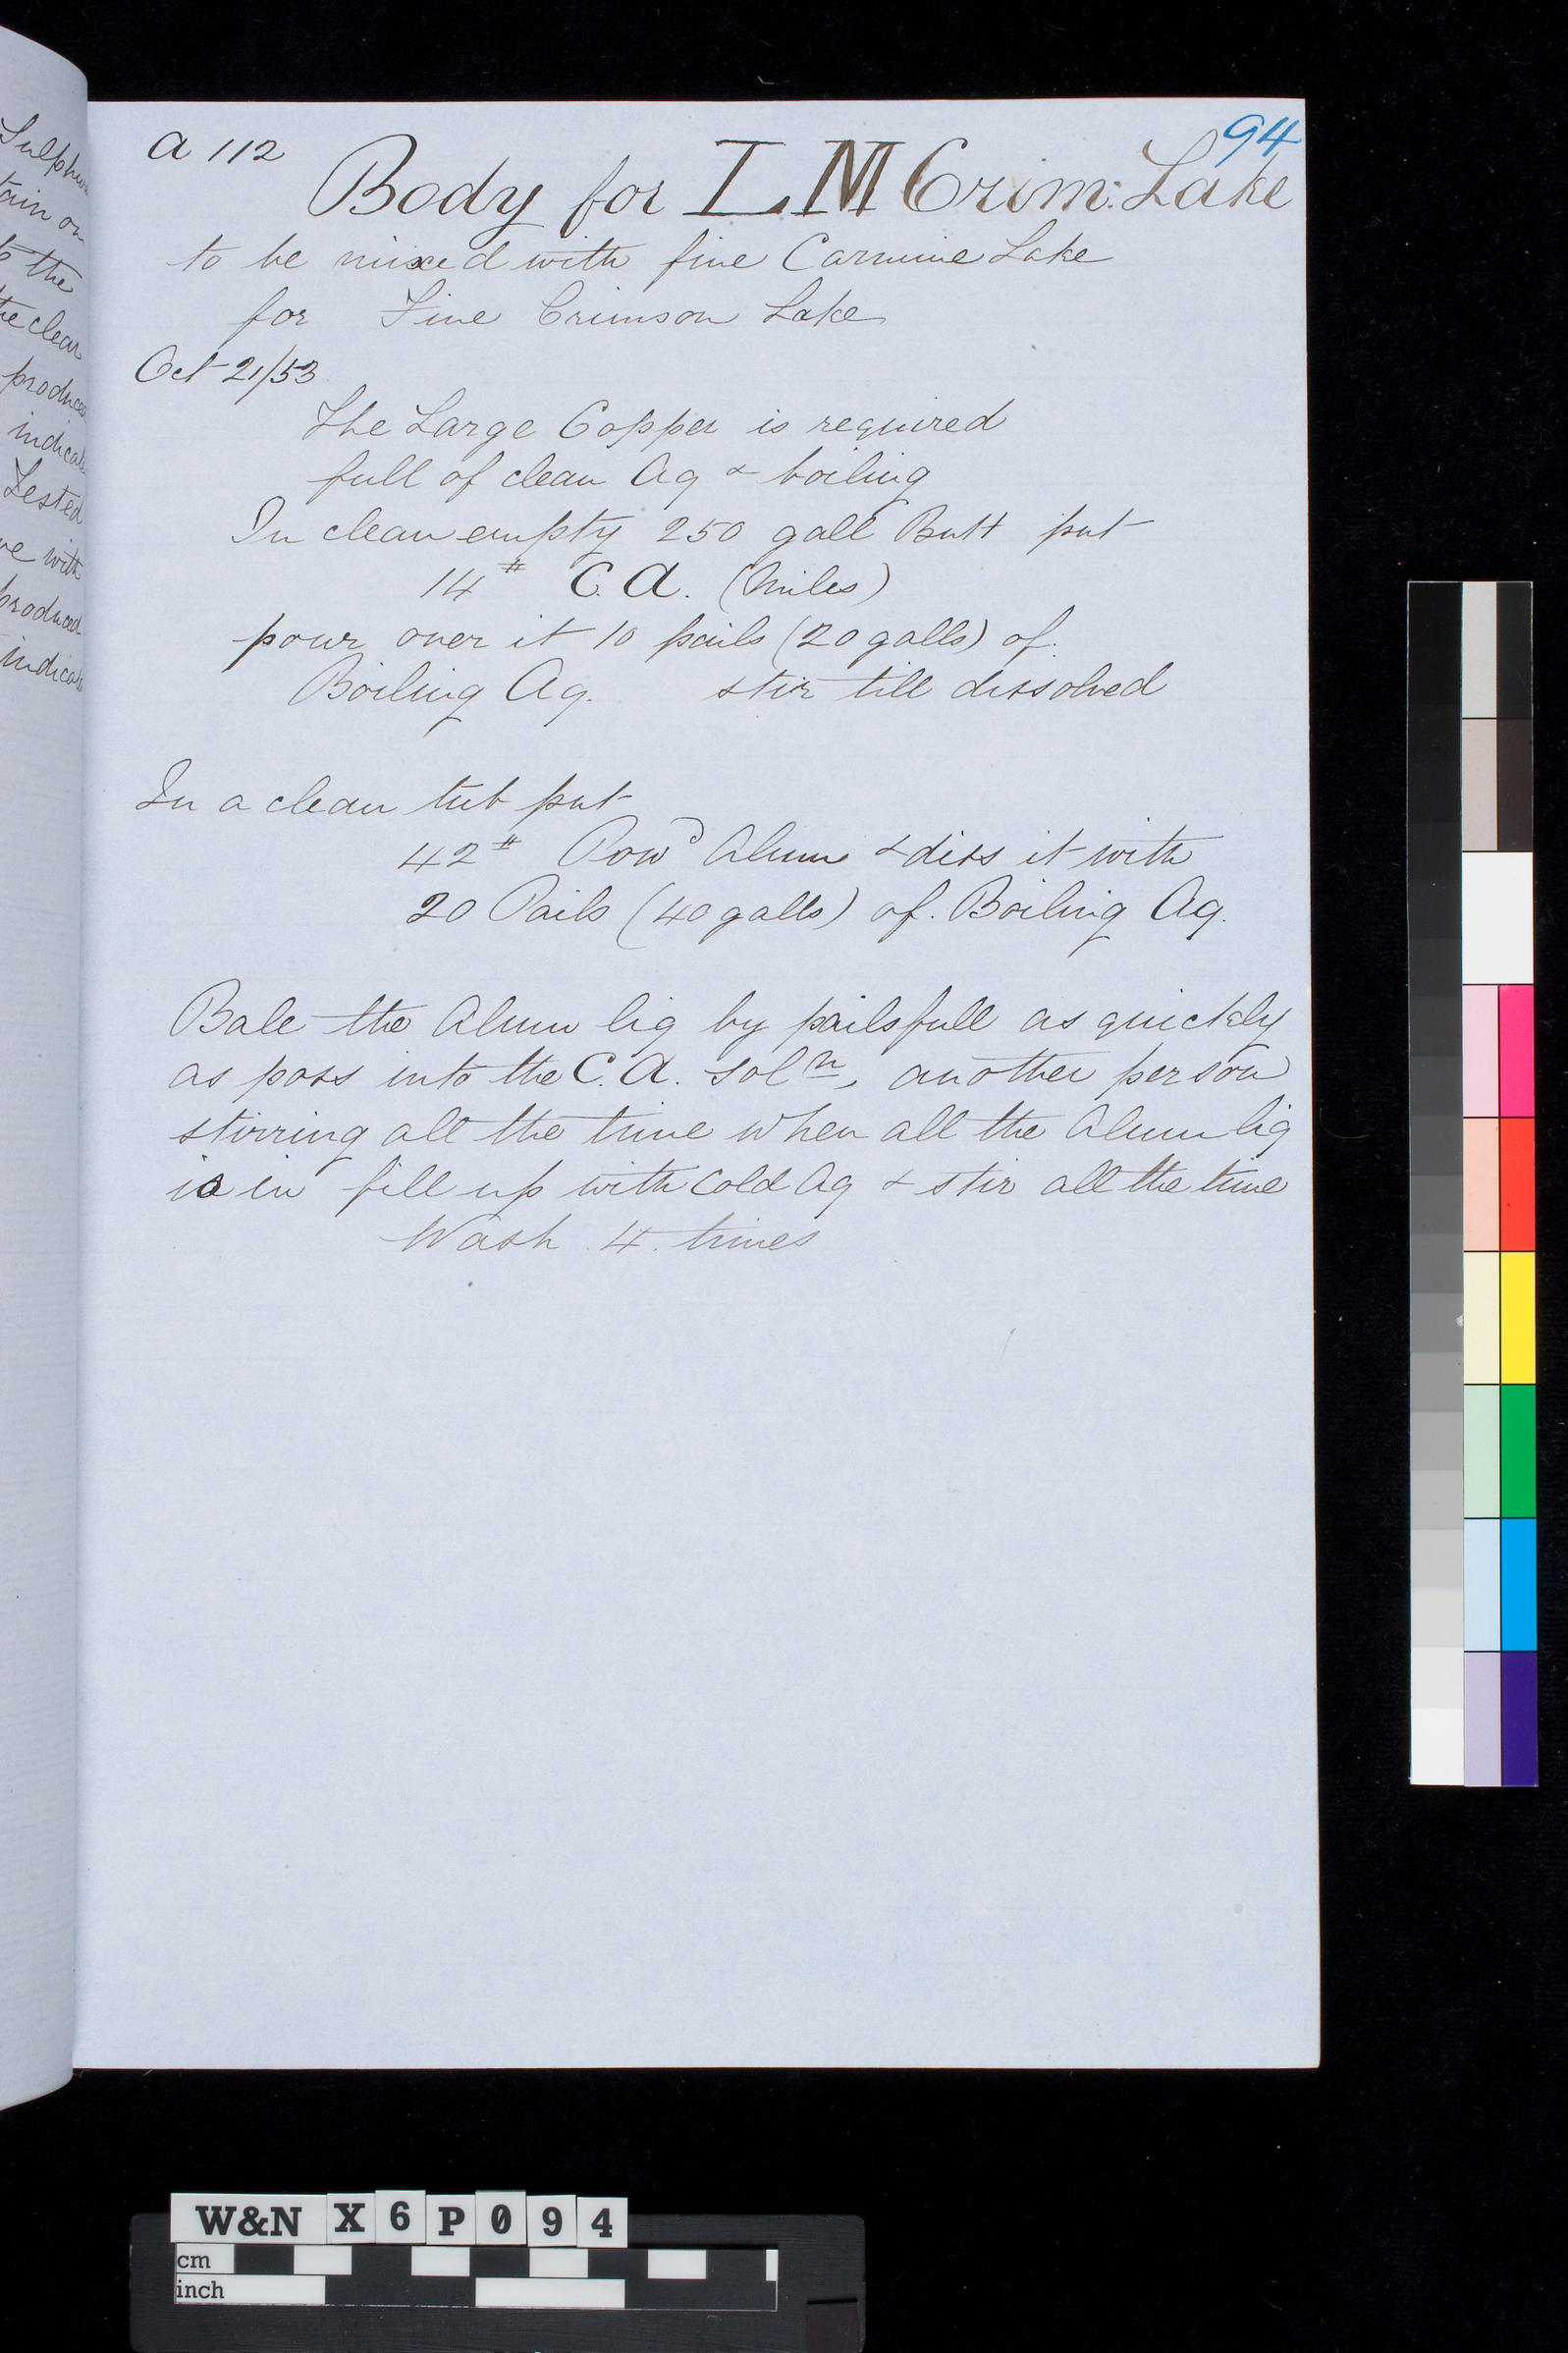 Sulphur
tain on
to the
the clear
produces
indicat
Tested
ve with
produced
indicat
94
a 112
Body for L M Crim: Lake
to be mixed with fine Carmine Lake
for Fine Crimson Lake
Oct 21/53
The Large Copper is required
full of clean Aq & boiling
In clean empty 250 gall Butt put
14 # C. A. (Miles)
pour over it 10 pails (20 galls) of
Boiling Aq. stir till dissolved
In a clean tub put
42 # Powd Alum & diss it with
20 Pails (40 galls) of Boiling Aq.
Bale the Alum liq by pailsfull as quickly
as poss into the C. A. soln, another person
stirring all the time when all the Alum liq
is in fill up with cold Aq & stir all the time
Wash 4 times
W&N X 6 P 0 9 4
cm
inch